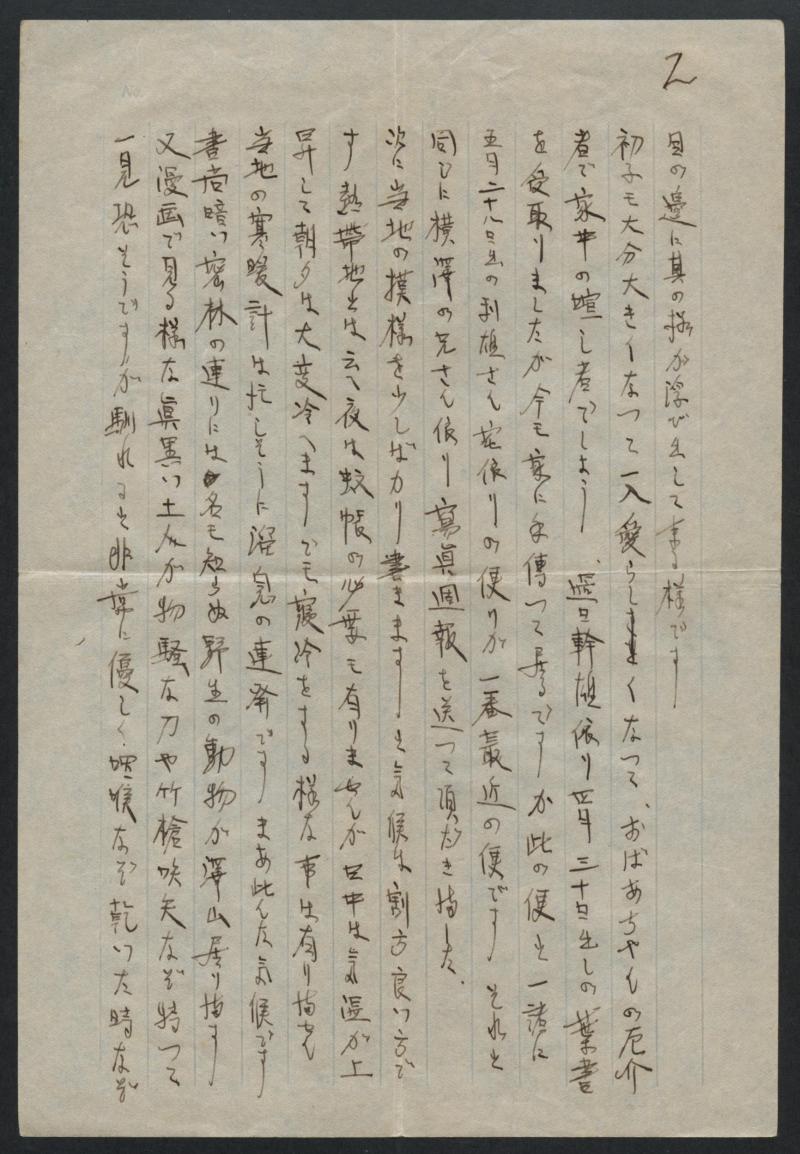 2
目の邉に其の様が浮び出して来る様です
初子も大分大きくなつて一入愛らしくなつて、おばあちやんの厄介
者で家中の喧し者でしよう 、過日幹雄依り四月三十日出しの葉書
を受取りましたが今も家に手傳つて居るですか此の便と一諸に
五月二十八日出の利雄さん宅依りの便りが一番最近の便です それと
同じに横澤の兄さん依り寫眞週報を送つて頂だき ました、
次に当地の模様を少しばかり書きますと気候は割方良い方で
す熱帯地とは云へ夜は蚊帳の必要も有りませんが日中は気温が上
昇して朝夕は大変冷へます でも寝冷をする様な事は有りません
当地の寒暖計は忙しそうに の連発です まあ此んな気候です
書尚暗い密林の連りには名も知らぬ野生の動物が澤山居ります
又漫画で見る様な眞黒い土人が物騒な刀や竹槍吹矢なぞ持つて
一見恐そうですが馴れると非常に優しく咽喉なぞ乾いた時なぞ